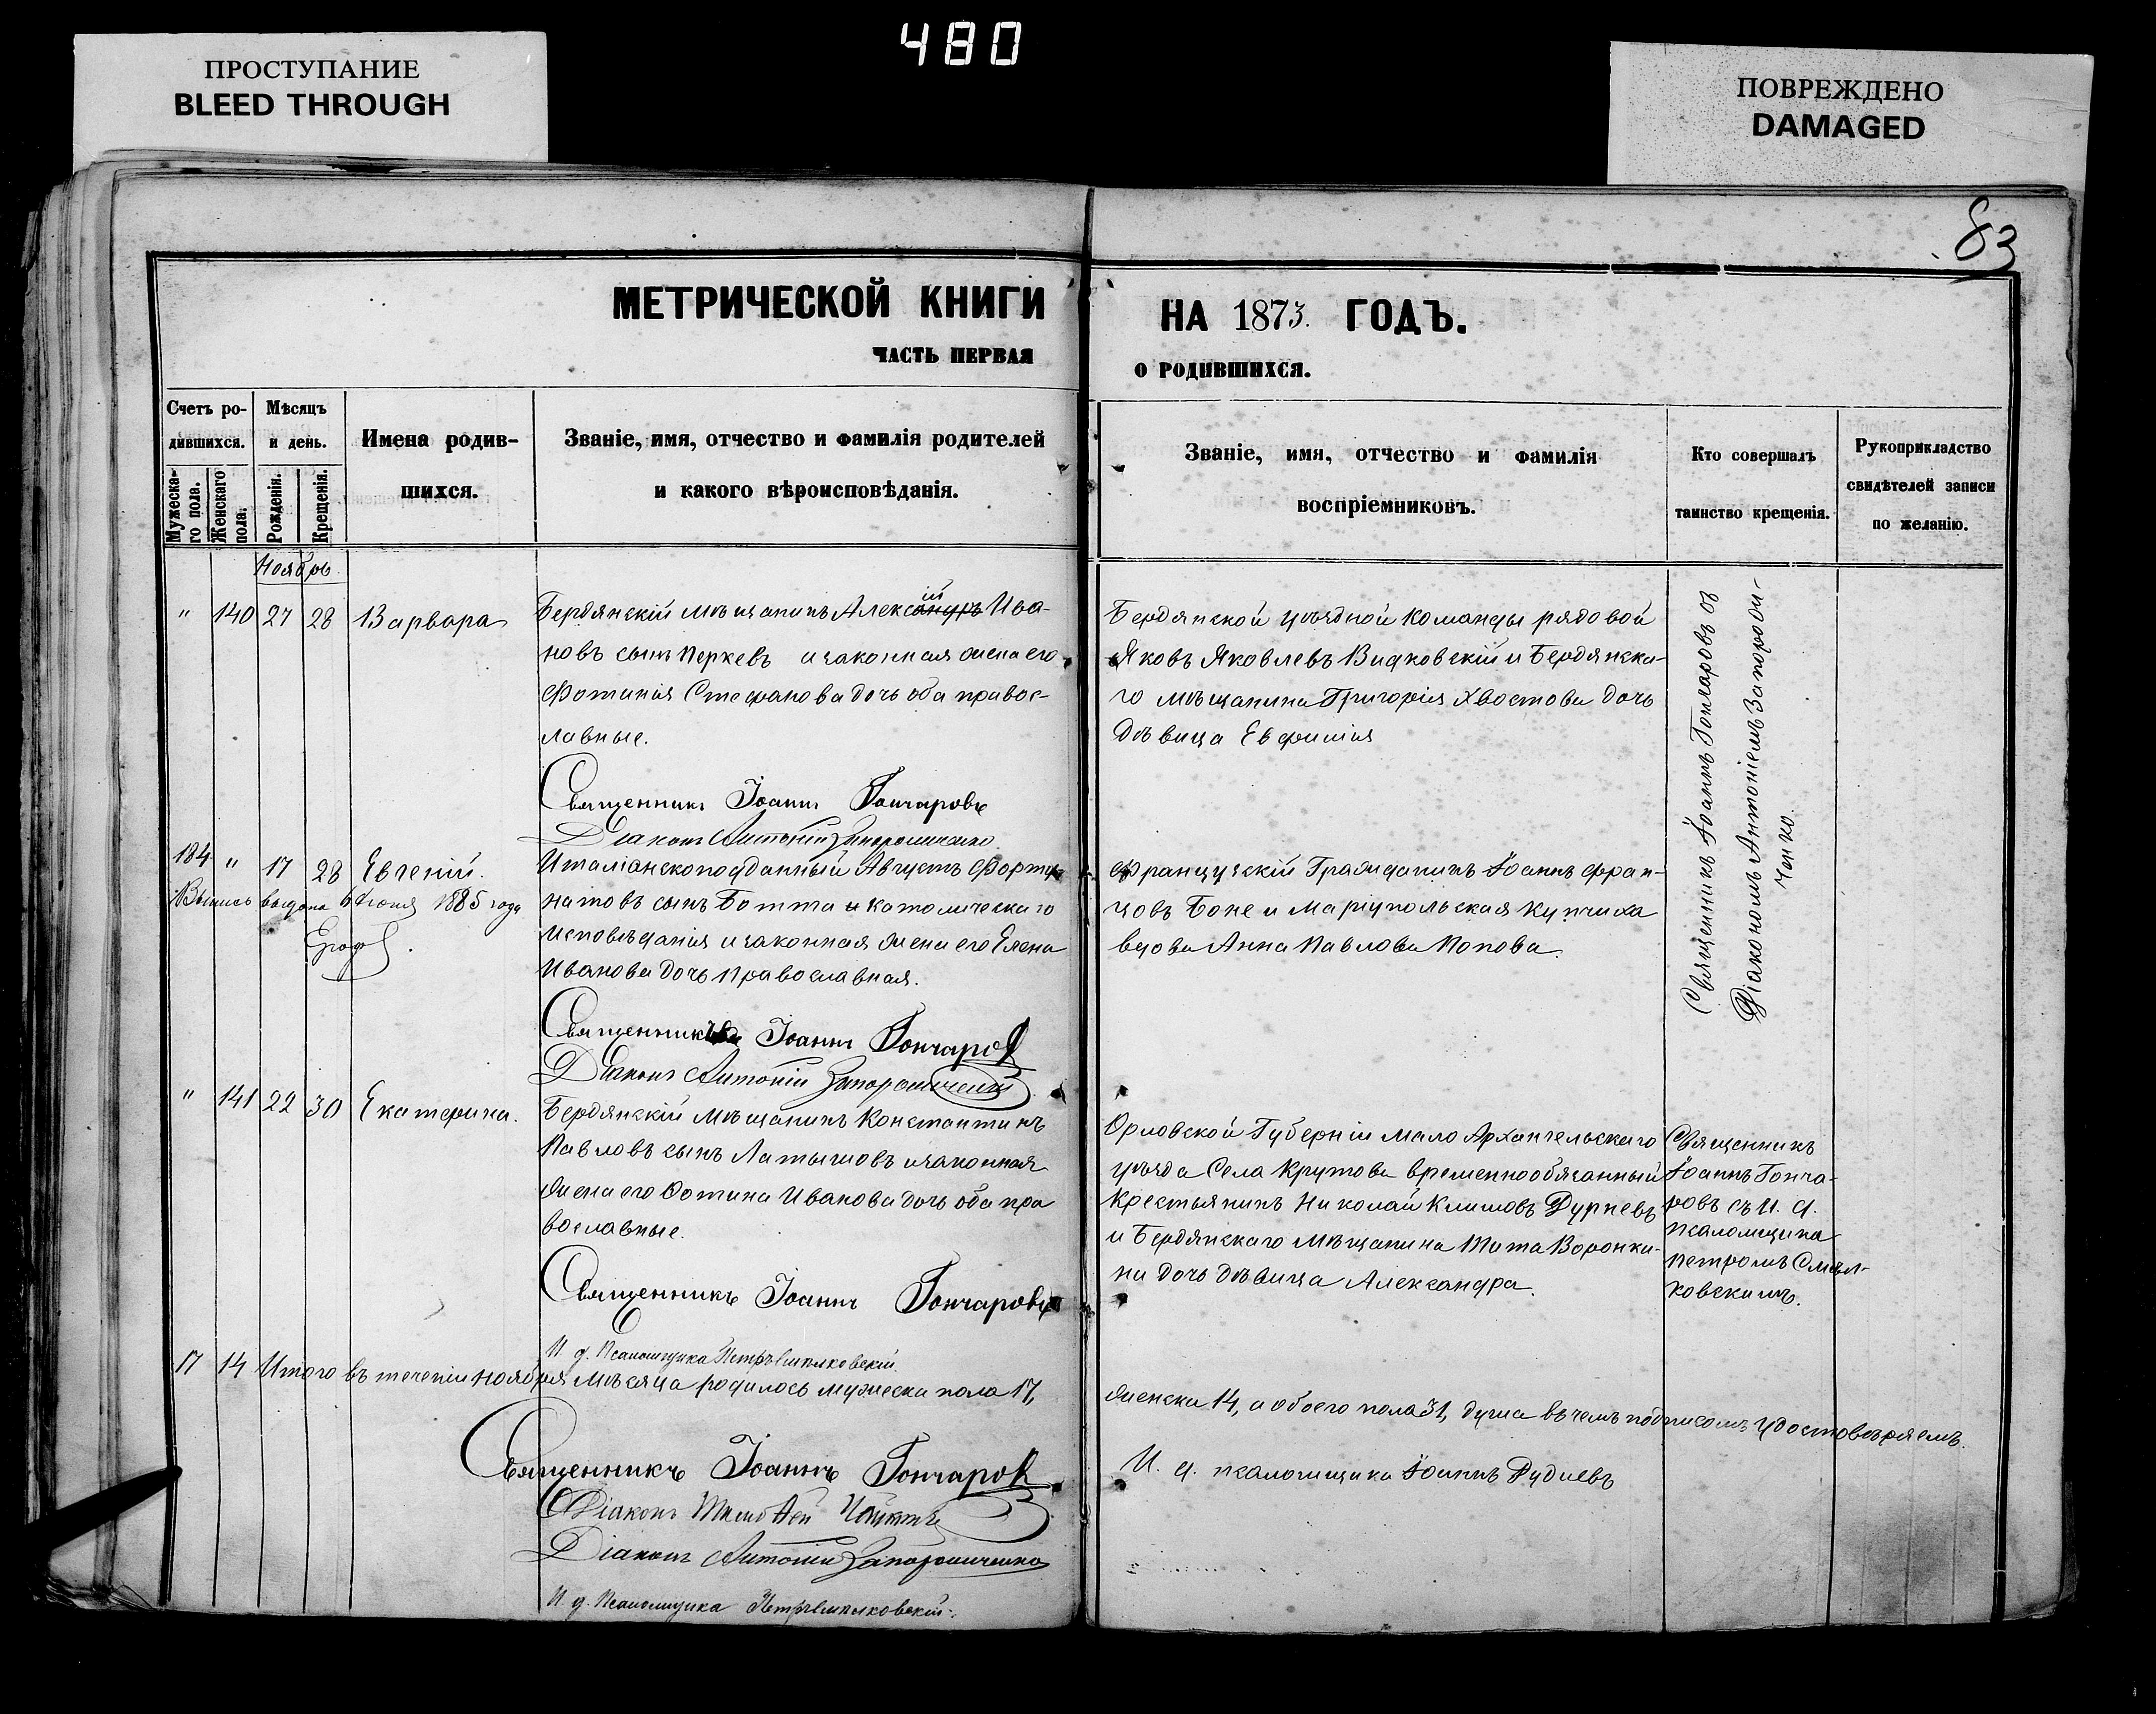 480
ПРОСТУПАНИЕ
BLEED THROUGH
ПОВРЕЖДЕНО
DAMAGED
83
МЕТРИЧЕСКОЙ КНИГИ
НА 1873. ГОДЪ.
ЧАСТЬ ПЕРВАЯ
О РОДИВШИХСЯ.
Счетъ ро-
дившихся.
Мужеска-
го пола.
Женскаго
пола.
Мѣсяцъ
и день.
Рожденія.
Крещенія.
Имена родив-
шихся.
Званіе, имя, отчество и фамилія родителей
и какого вѣроисповѣданія.
Званіе, имя, отчество и фамилія
воспріемниковъ.
Кто совершалъ
таинство крещенія.
Рукоприкладство
свидѣтелей записи
по желанію.
Ноябрь
" 140 27 28 Варвара
Бердянскій мѣщанинъ Алексѣй Ива-
новъ сынъ Перкевъ и законная жена его
Фотинія Стефанова дочь оба правос-
лавные.
Священникъ Іоаннъ Гончаровъ
Діаконъ Антоній Запорошченко
Бердянской уѣздной команды рядовой
Яковъ Яковлевъ Видковскій и Бердянска-
го мѣщанина Григорія Хвостова дочь
дѣвица Евфимія
Священникъ Іоаннъ Гончаровъ съ
Діакономъ Антоніемъ Запорой-
ченко.
184 " 17 28 Евгеній.
Выпись выдана 6 Іюня 1885 года
Италіанскоподданный Августъ Форту-
натовъ сынъ Ботта католическаго
исповѣданія и законная жена его Елена
Иванова дочь православная.
Священникъ Іоаннъ Гончаров
Діаконъ Антоній Запорошченко
Французскій Гражданинъ Іоаннъ Фран-
цовъ Боне и Маріупольская купчиха
вдова Анна Павлова Попова.
" 141 22 30 Екатерина.
Бердянскій мѣщанинъ Константинъ
Павловъ сынъ Латышовъ и законная
жена его Фотина Иванова дочь оба пра
вославные.
Священникъ Іоаннъ Гончаровъ
И. д. Псаломщика Петръ Смолковскій.
Орловской Губерніи Мало Архангельскаго
уѣзда Села Крутова временнообязанный
Крестьянинъ Николай Климовъ Дурневъ
и Бердянскаго мѣщанина Тита Воронки-
на дочь дѣвица Александра.
Священникъ
Іоаннъ Гонча-
ровъ съ И. д.
псаломщика
Петромъ Смол-
ковскимъ.
17 14 Итого въ теченіи Ноября мѣсяца родилось мужеска пола 17,
женска 14, а обоего пола 31, душа въ чемъ подписомъ удостовѣряемъ.
Священникъ Іоаннъ Гончаров
Діаконъ
Діаконъ Антоній Запорошченко
И. д. Псаломщика Петръ Смолковскій.
И. д. псаломщика Іоаннъ Рудиевъ